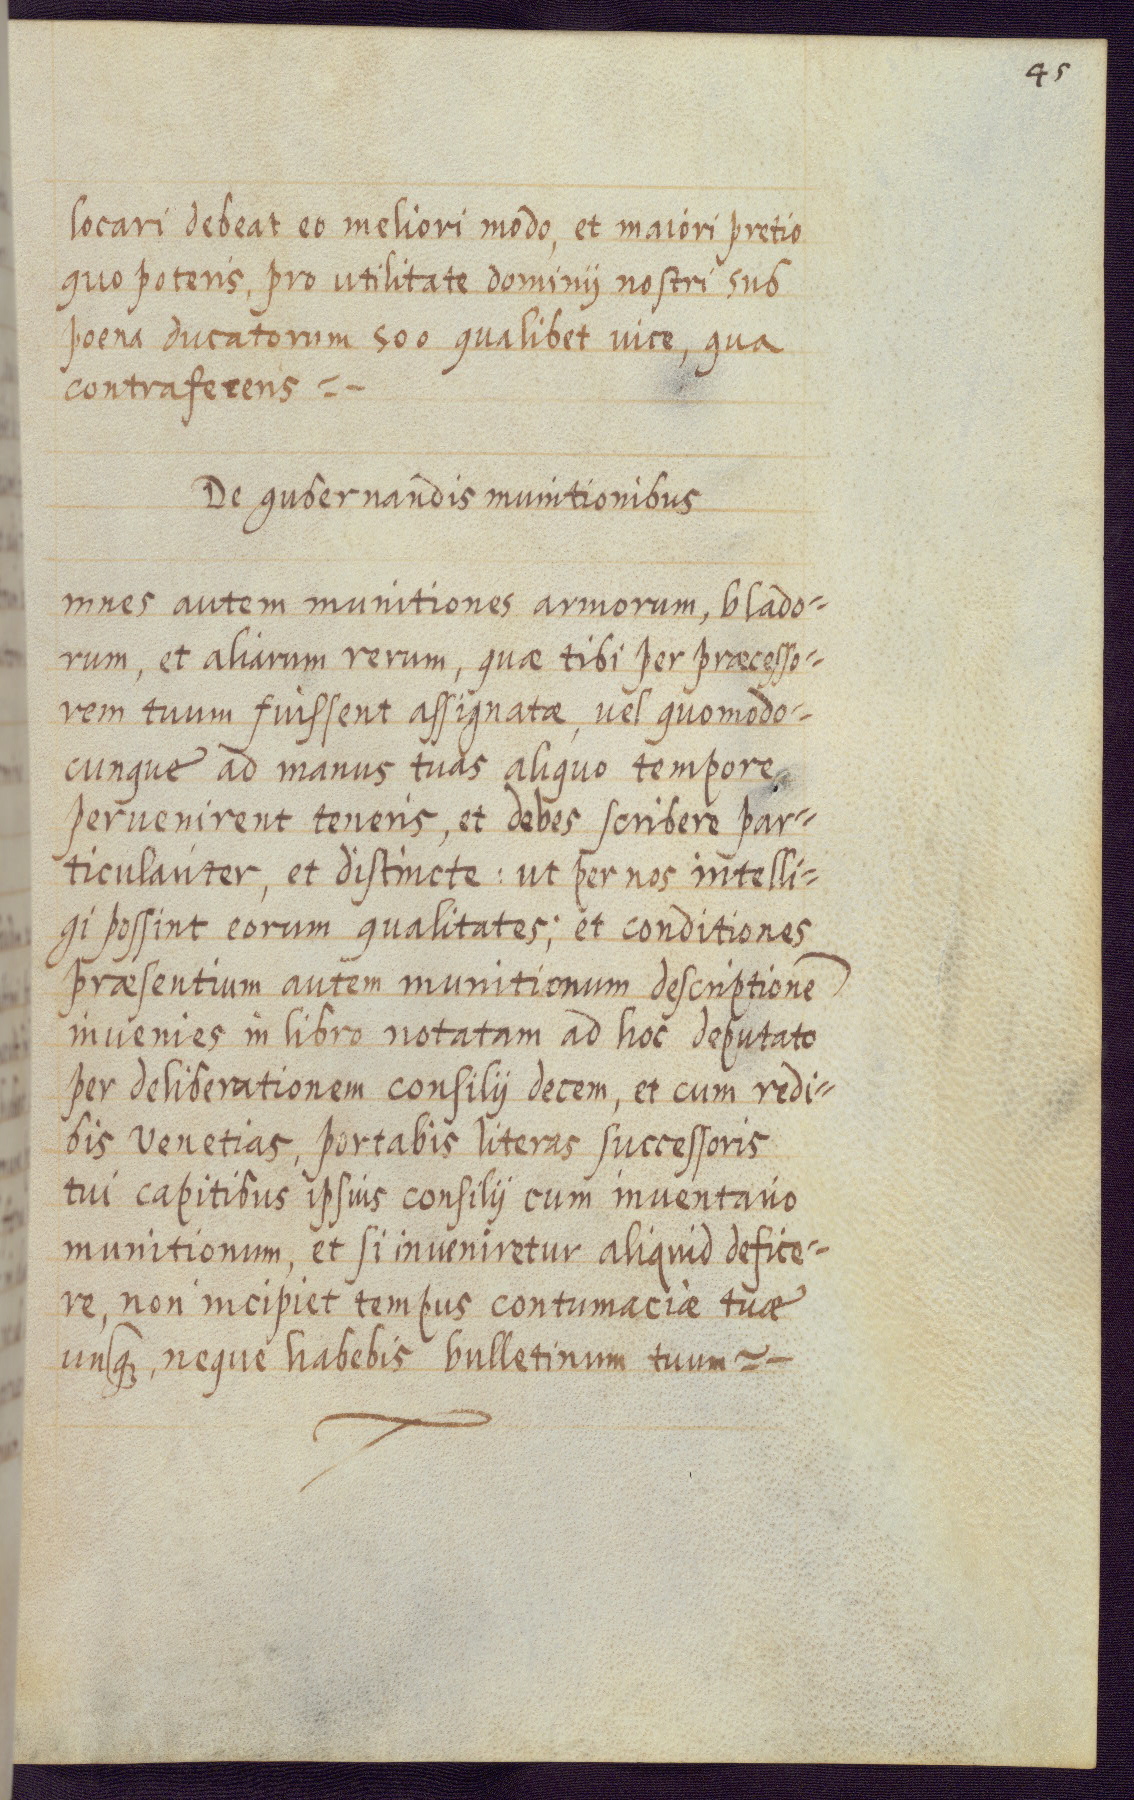 45
locari debeat eo meliori modo, et maiori pretio
quo poteris, pro utilitate dominij nostri sub
poena ducatorum 500 qualibet vice, qua
contrafeceris =-
De gubernandis munitionibus
mnes autem munitiones armorum, blado=
rum, et aliarum rerum, quæ tibi per præcesso=
rem tuum fuissent assignatæ, vel quomodo=
cunque ad manus tuas aliquo tempore
pervenirent teneris, et debes scribere par=
ticulariter, et distincte: ut per nos intelli=
gi possint eorum qualitates; et conditiones
præsentium autem munitionum descriptionē
invenies in libro notatam ad hoc deputato
per deliberationem consilij decem, et cum redi=
bis Venetias, portabis literas successoris
tui capitibus ipsius consilij cum inventario
munitionum, et si inveniretur aliquid defice=
re, non incipiet tempus contumaciæ tuæ
unq̃, neque habebis bulletinum tuum =-